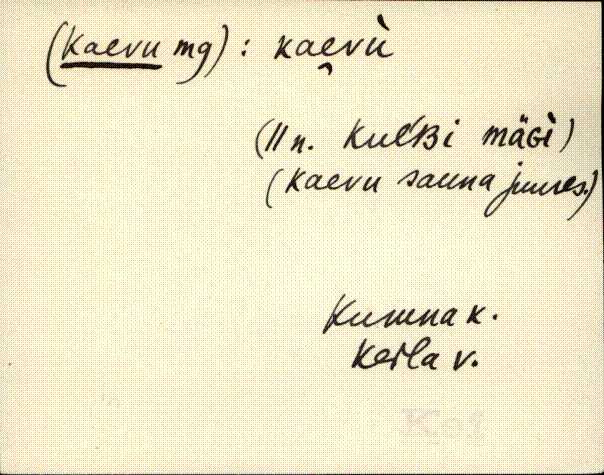 (Kaevu mg) : kae̯vù
(II n. KuĺBi mäGì)
(Kaevu sauna juures.)
Kumna k.
Keila v.
Kei